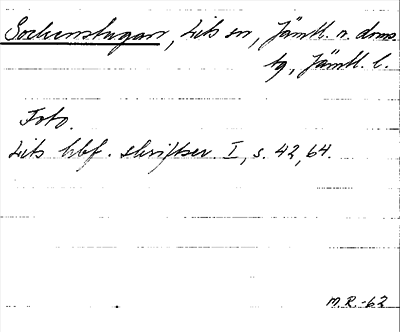 Sockenstugan, Lits sn, Jämtl. n. doms.
tg, Jämtl. l.
Foto.
Lits hbf. skrifter I, s. 42, 64.
M.R.-62